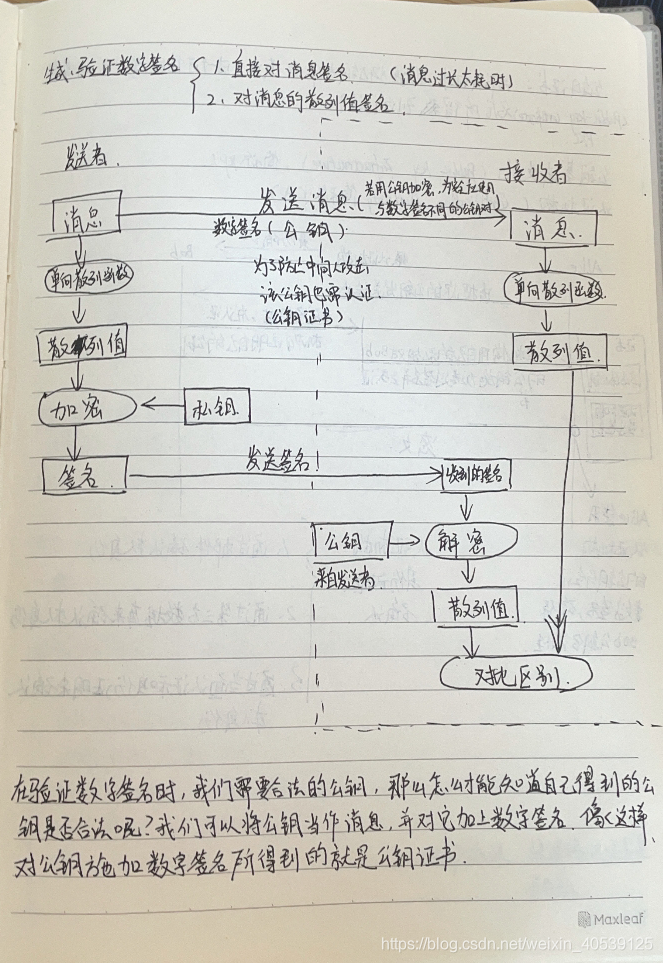 生成、验证数字签名 1. 直接对消息签名. (消息过长太耗时)
2. 对消息的散列值签名.
发送者.
接收者
消息
发送消息. (若用公钥加密, 为
与数字签名不同的公钥对
消息.
数字签名 (公钥).
单向散列函数
为了防止中间人攻击
该公钥也需认证.
(公钥证书)
单向散列函数.
散列值
散列值.
加密
私钥
签名.
发送签名
收到的签名
公钥
来自发送者
解密
散列值.
对比区别.
在验证数字签名时, 我们需要合法的公钥, 那么怎么才能知道自己得到的公
钥是否合法呢? 我们可以将公钥当作消息, 并对它加上数字签名. 像这样
对公钥施加数字签名所得到的就是公钥证书.
Maxleaf
https://blog.csdn.net/weixin_40539125